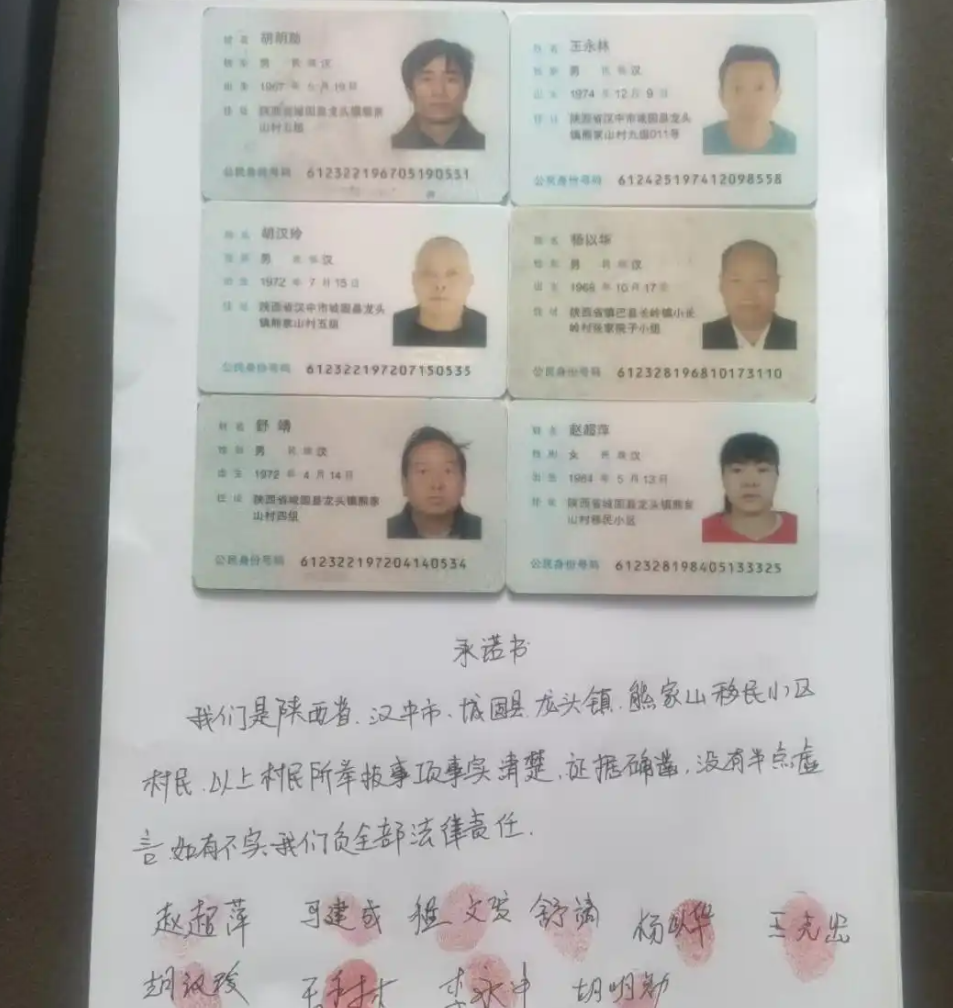 姓名 胡明勋
性别 男 民族 汉
出生 1967 年 5 月 19 日
住址 陕西省城固县龙头镇熊家
山村五组
公民身份号码 612322196705190531
姓名 王永林
性别 男 民族 汉
出生 1974 年 12 月 9 日
住址 陕西省汉中市城固县龙头
镇熊家山村九组011号
公民身份号码 612425197412098558
姓名 胡汉玲
性别 男 民族 汉
出生 1972 年 7 月 15 日
住址 陕西省汉中市城固县龙头
镇熊家山村五组
公民身份号码 612322197207150535
姓名 杨以华
性别 男 民族 汉
出生 1968 年 10 月 17 日
住址 陕西省镇巴县长岭镇小长
岭村张家院子小组
公民身份号码 612328196810173110
姓名 舒靖
性别 男 民族 汉
出生 1972 年 4 月 14 日
住址 陕西省城固县龙头镇熊家
山村四组
公民身份号码 612322197204140534
姓名 赵超萍
性别 女 民族 汉
出生 1984 年 5 月 13 日
住址 陕西省城固县龙头镇熊家
山村移民小区
公民身份号码 612328198405133325
承诺书
我们是陕西省.汉中市.城固县.龙头镇.熊家山移民小区
村民.以上村民所举报事项事实清楚.证据确凿.没有半点虚
言.如有不实我们负全部法律责任.
赵超萍 马建成 程文发 舒靖 杨以华
胡汉玲 李永中 胡明勋